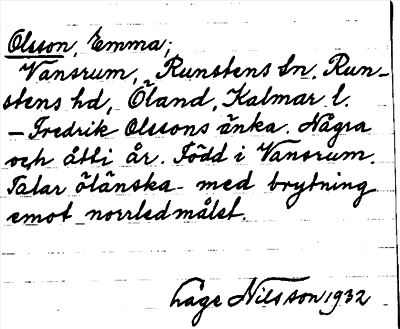 Olsson, Emma;
Vansrum, Runstens sn, Run-
stens hd, Öland, Kalmar l.
– Fredrik Olssons änka. Några
och åtti år. Född i Vansrum.
Talar ölänska med brytning
emot norrledmålet.
Håge Nilsson 1932